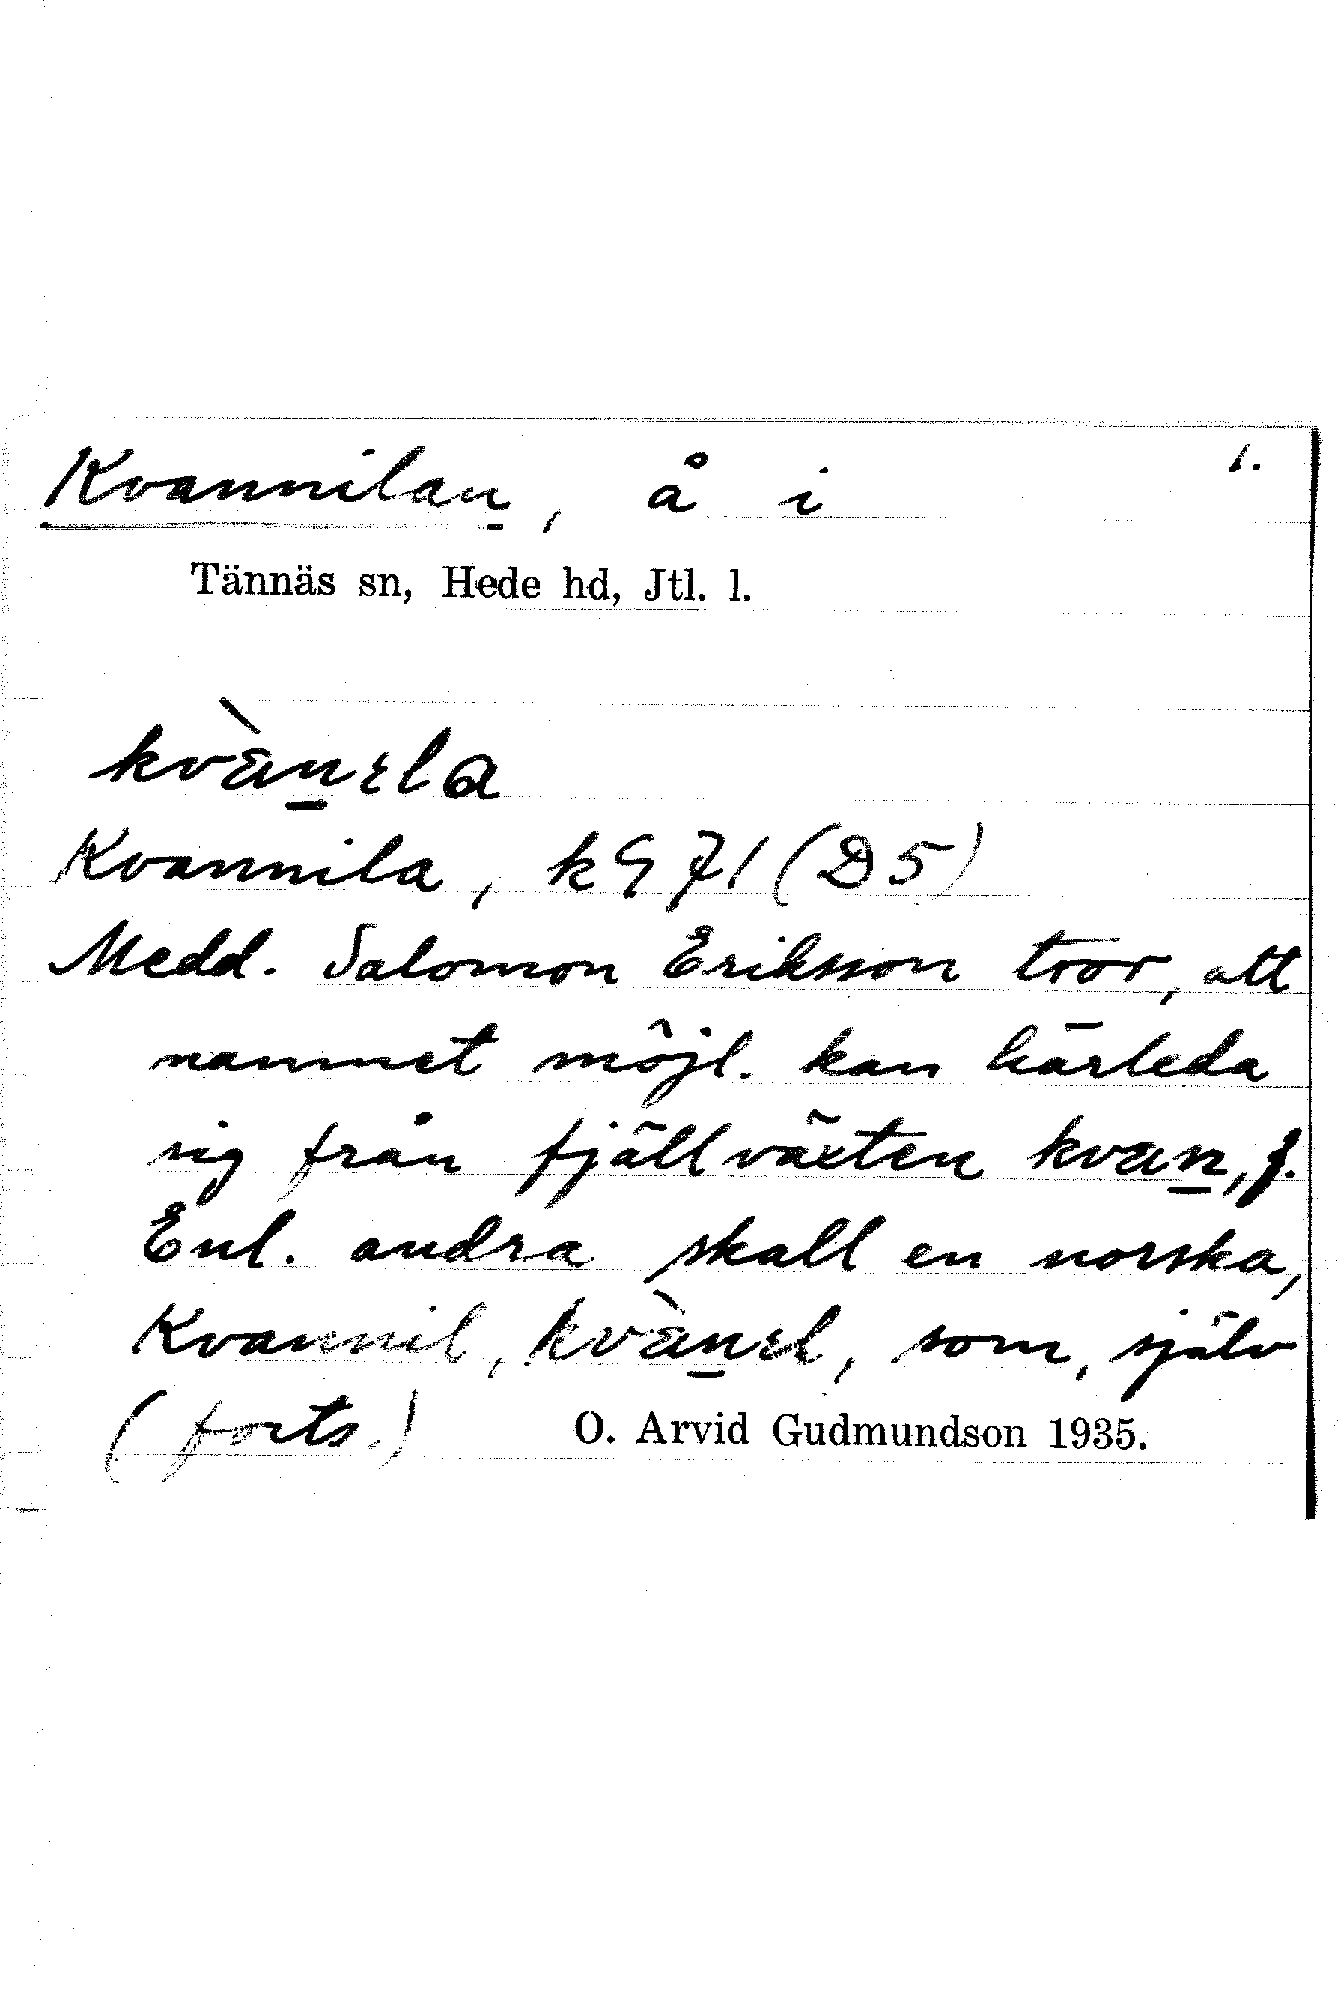 Kvannilan, å i 1.
Tännäs sn, Hede hd, Jtl. l.
kvàn̲ɩla
Kvannila, kG 71 (D5)
Medd. Salomon Eriksson tror, att
namnet möjl. kan härleda
sig från fjällväxten kvan̲, f.
Enl. andra skall en norska,
Kvannil, kvàn̲ɩl, som, själv
(forts.) O. Arvid Gudmundson 1935.